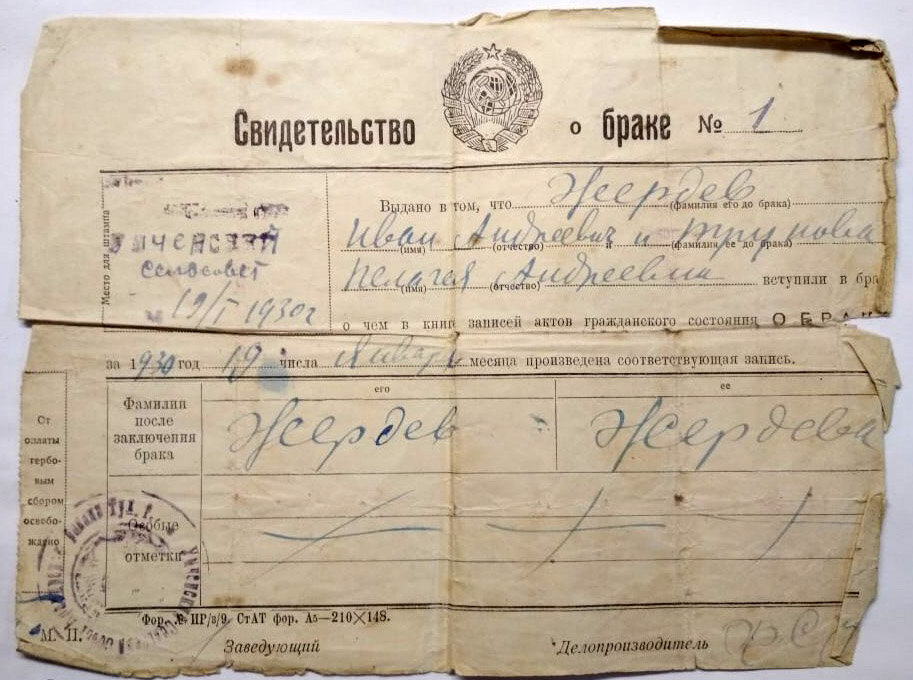 Свидетельство о браке № 1
Место для штампа
сельсовет
19/I 1930г
Выдано в том, что Жердев
(фамилия его до брака)
Иван Андреевич и Трунова
(имя) (отчество) (фамилия ее до брака)
Пелагея Андреевна вступили в бра
(имя) (отчество)
о чем в книг записей актов гражданского состояния О БРАК
за 1930 год 19 числа Января месяца произведена соответствующая запись.
От оплаты гербовым сбором освобо-
От
оплаты
гербо-
вым
сбором
освобо-
Фамилии
после
заключения
брака
его
ее
Жердев
Жердева
Особые
отметки
М. П.
Фор. № ИР/з/9. СтАТ фор. А5—210×148.
Заведующий
Делопроизводитель